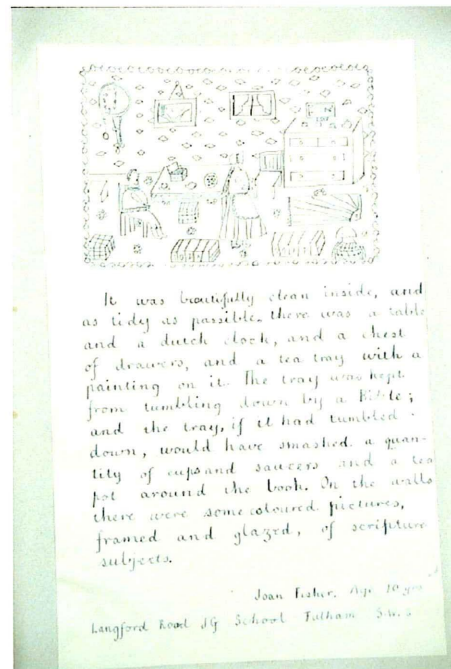 It was beautifully clean inside, and
as tidy as possible. there was a table
and a dutch clock, and a chest
of drawers, and a tea tray with a
painting on it. The tray was kept
from tumbling down by a Bible;
and the tray, if it had tumbled
down, would have smashed a quan-
tity of cups and saucers and a tea
pot around the book. On the walls
there were some coloured pictures,
framed and glazed, of scripture
subjects.
Joan Fisher. Age 10 yrs
Langford Road J.G School Fulham S.W.6